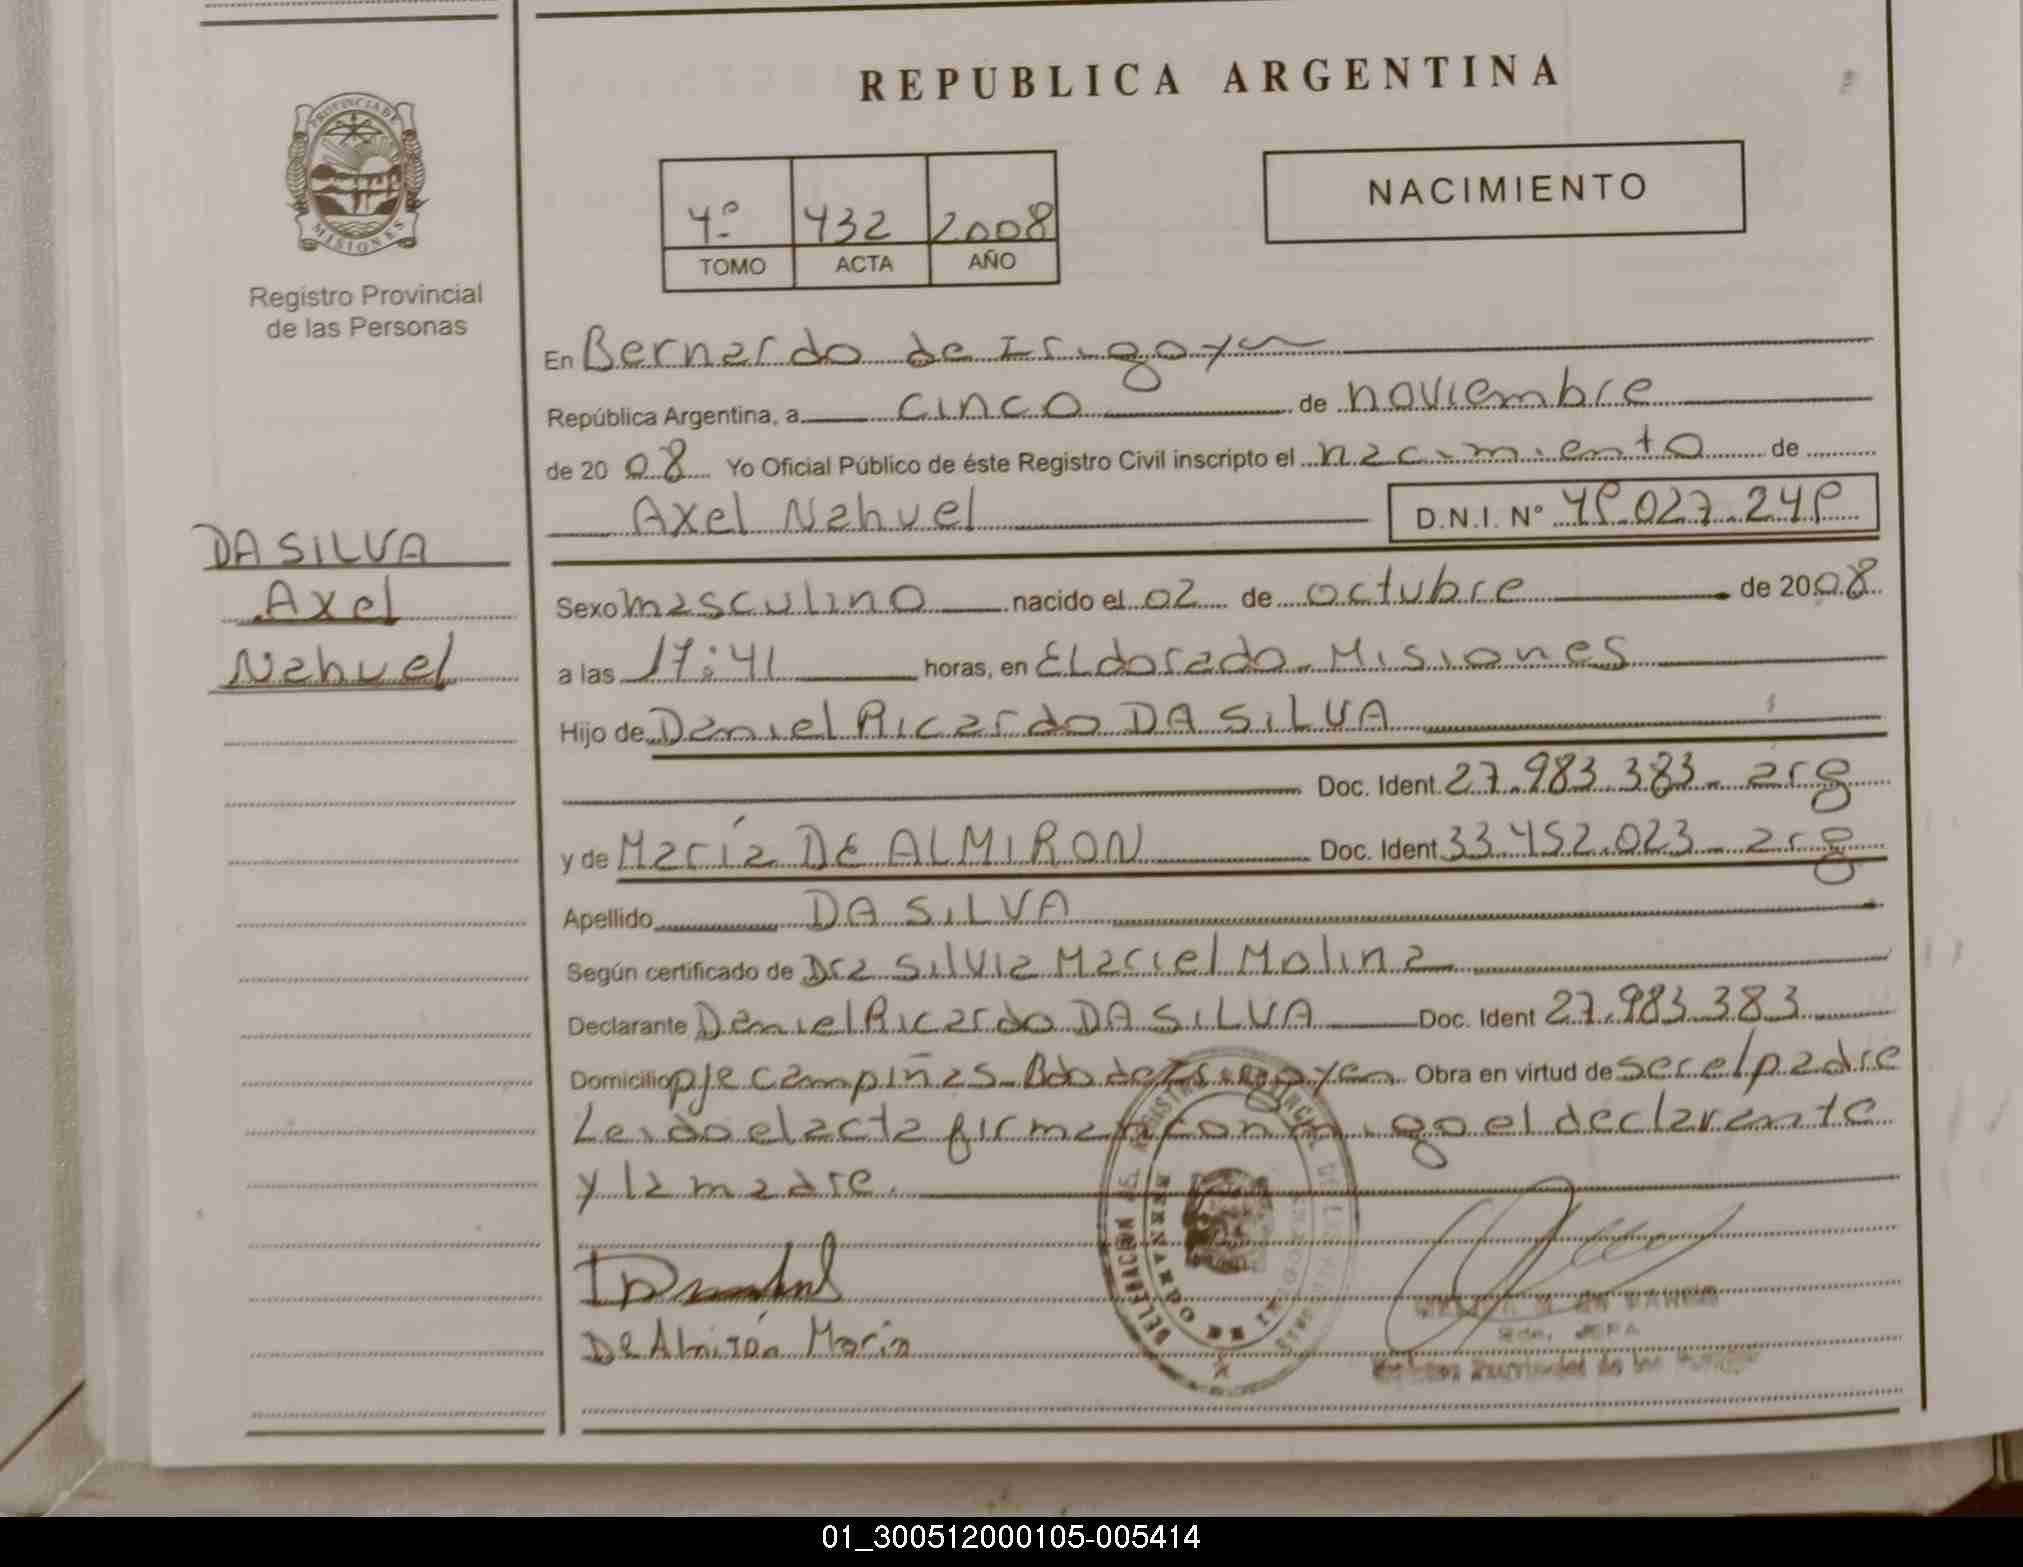 REPUBLICA ARGENTINA
PROVINCIA DE MISIONES
Registro Provincial
de las Personas
4º 432 2008
TOMO ACTA AÑO
NACIMIENTO
En Bernardo de Irigoyen
República Argentina, a cinco de noviembre
de 20 08 Yo Oficial Público de éste Registro Civil inscripto el nacimiento de
Axel Nahuel D.N.I. Nº
DA SILVA
Axel
Nahuel
Sexo masculino nacido el 02 de octubre de 2008
a las 17:41 horas, en Eldorado Misiones
Hijo de Daniel Ricardo DA SILVA
Doc. Ident. 27.983.383 - arg
y de María DE ALMIRON Doc. Ident. 33.452.023 - arg
Apellido DA SILVA
Según certificado de Dra Silvia Marcel Molina
Declarante Daniel Ricardo DA SILVA Doc. Ident 27.983.383
Domicilio pje campiñas Bdo de Irigoyen Obra en virtud de ser el padre
Leido el acta firman conmigo el declarante
y la madre.
De Almirón María
DELEGACION DEL REGISTRO PROVINCIAL DE LAS
BERNARDO DE
01_300512000105-005414